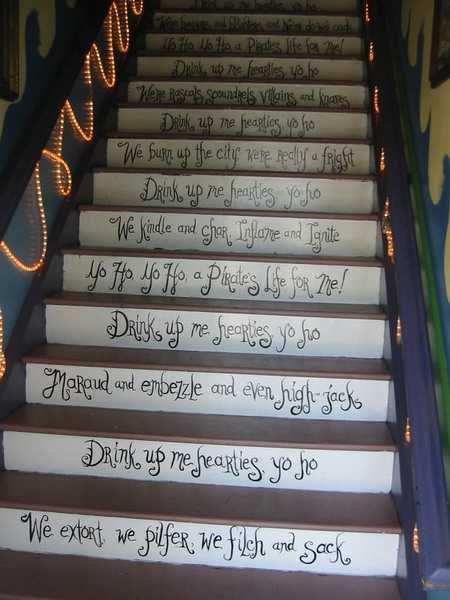 Drink up me hearties yo ho
We're beggars and Blighters and Ne'er do-well cads
Yo Ho, Yo Ho a Pirates life for me!
Drink, up me hearties, yo ho
We're Rascals, scoundrels, Villains, and knaves
Drink up me hearties, yo ho
We burn up the city, we're really a fright
Drink up me hearties yo ho
We kindle and char, Inflame and Ignite
Yo Ho, Yo Ho, a Pirate's Life for Me!
Drink up me, hearties, yo ho
Maraud and embezzle and even high-jack
Drink up me hearties, yo ho
We extort, we pilfer, we filch and sack